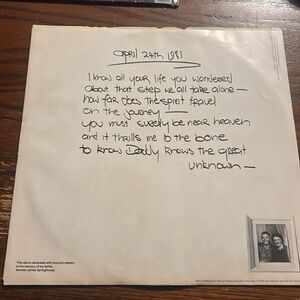 April 24th 1981
I know all your life you wondered
about that step we all take alone —
how far does the spirit travel
on the journey —
you must surely be near heaven
and it thrills me to the bone
to know Daddy knows the great
unknown —
This album dedicated with love and respect
to the memory of my father,
Norman James Springthorpe